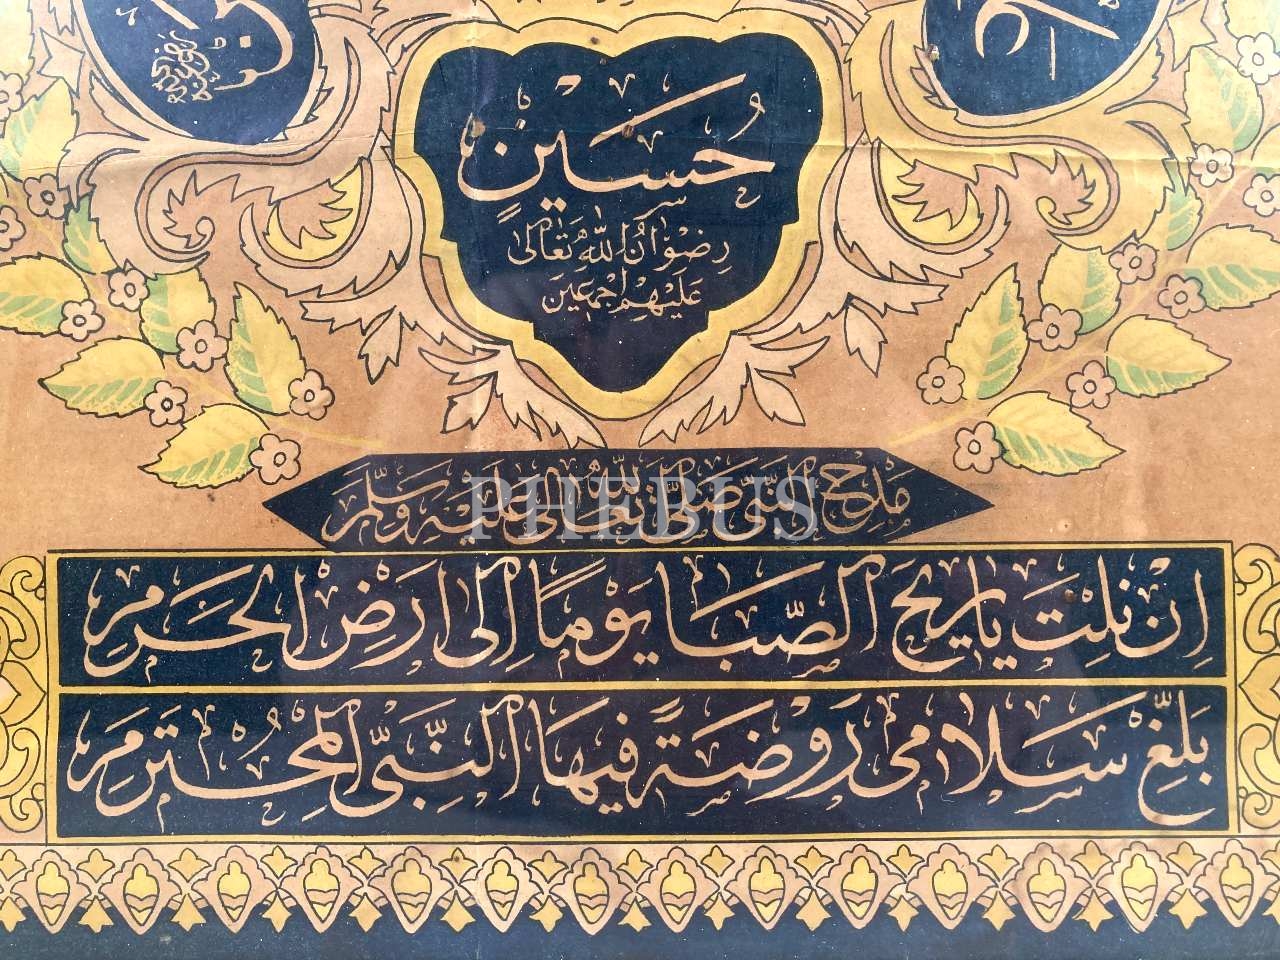 حُسَيْنٍ
رِضْوَانُ اللّٰهِ تَعَالٰى
عَلَيْهِمْ اَجْمَعِينَ
مَدْحُ النَّبِيِّ صَلَّى اللّٰهُ تَعَالٰى عَلَيْهِ وَسَلَّمَ
PHEBUS
اِنْ نِلْتَ يَا رِيحَ الصَّبَا يَوْمًا اِلٰى اَرْضِ الْحَرَمِ
بَلِّغْ سَلَامِى رَوْضَةً فِيهَا النَّبِىُّ الْمُحْتَرَمِ